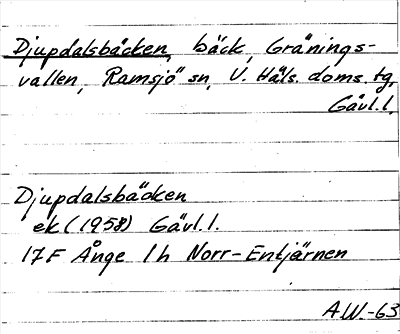 Djupdalsbäcken, bäck, Grånings-
vallen, Ramsjö sn, V. Häls. doms. tg,
Gävl. l.
Djupdalsbäcken
ek (1958) Gävl. l.
17F Ånge 1h Norr-Entjärnen
AW-63